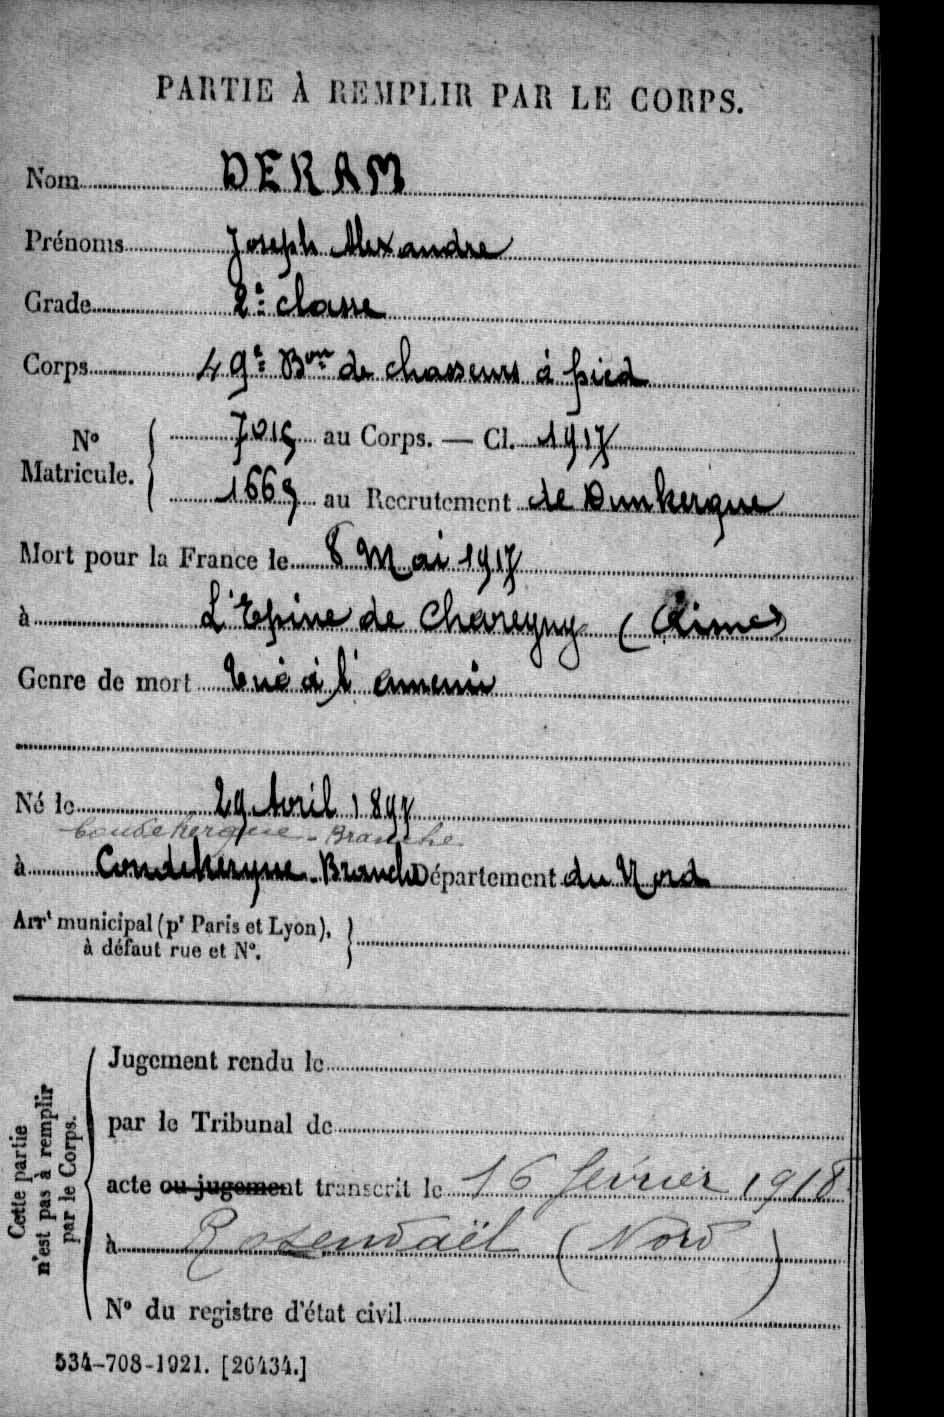 PARTIE À REMPLIR PAR LE CORPS.
Nom DERAM
Prénoms Joseph Alexandre
Grade 2e classe
Corps 49e Bon de chasseurs à pied
No Matricule. 7019 au Corps. — Cl. 1917
1669 au Recrutement de Dunkerque
Mort pour la France le 8 Mai 1917
à L'Epine de Chevregny (Aisne)
Genre de mort tué à l'ennemi
Né le 29 Avril 1897
Coudekerque-Branche
à Coudekerque-Branche Département du Nord
Arrt municipal (pr Paris et Lyon),
à défaut rue et No.
Cette partie
n'est pas à remplir
par le Corps.
Jugement rendu le
par le Tribunal de
acte ou jugement transcrit le 16 février 1918
à Rosendaël (Nord)
No du registre d'état civil
534-708-1921. [26434.]